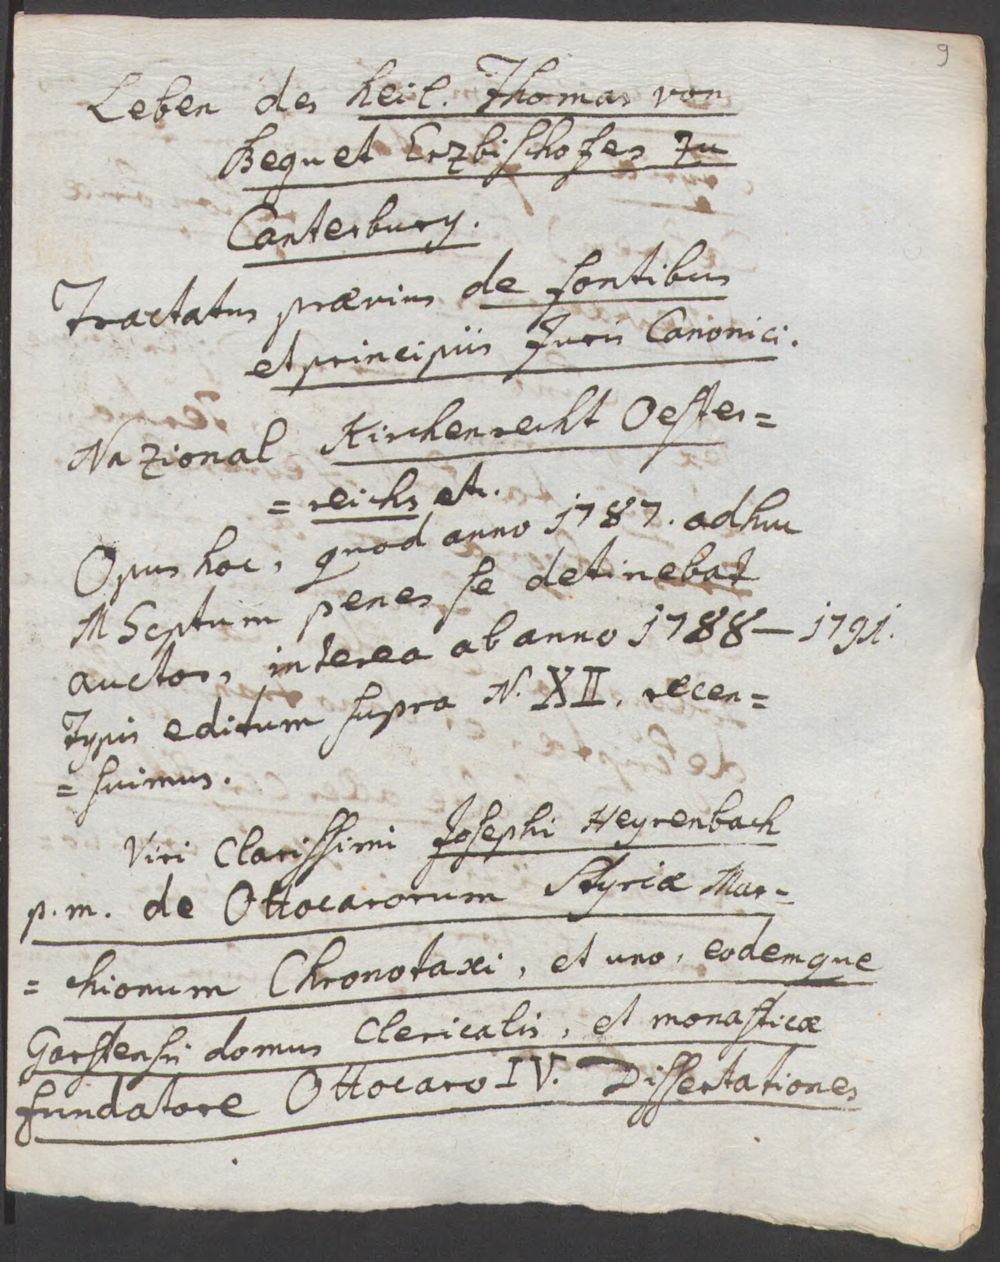 9
Leben des heil. Thomas von
Bequet Erzbischofes zu
Canterbury.
Tractatus prævius de fontibus
et principiis Juris Canonici.
Nazional Kirchenrecht Oester=
=reichs etc.
Opus hoc, quod anno 1787. adhuc
MScptum penes se detinebat
auctor, interea ab anno 1788 — 1791.
Typis editum supra N. XII. recen=
=suimus.
Viri Clarissimi Josephi Heyrenbach
p. m. de Ottocarorum Styriæ Mar=
=chionum Chronotaxi, et uno, eodemque
Garstensis domus Clericalis, et monasticæ
fundatore Ottocaro IV. Dissertationes